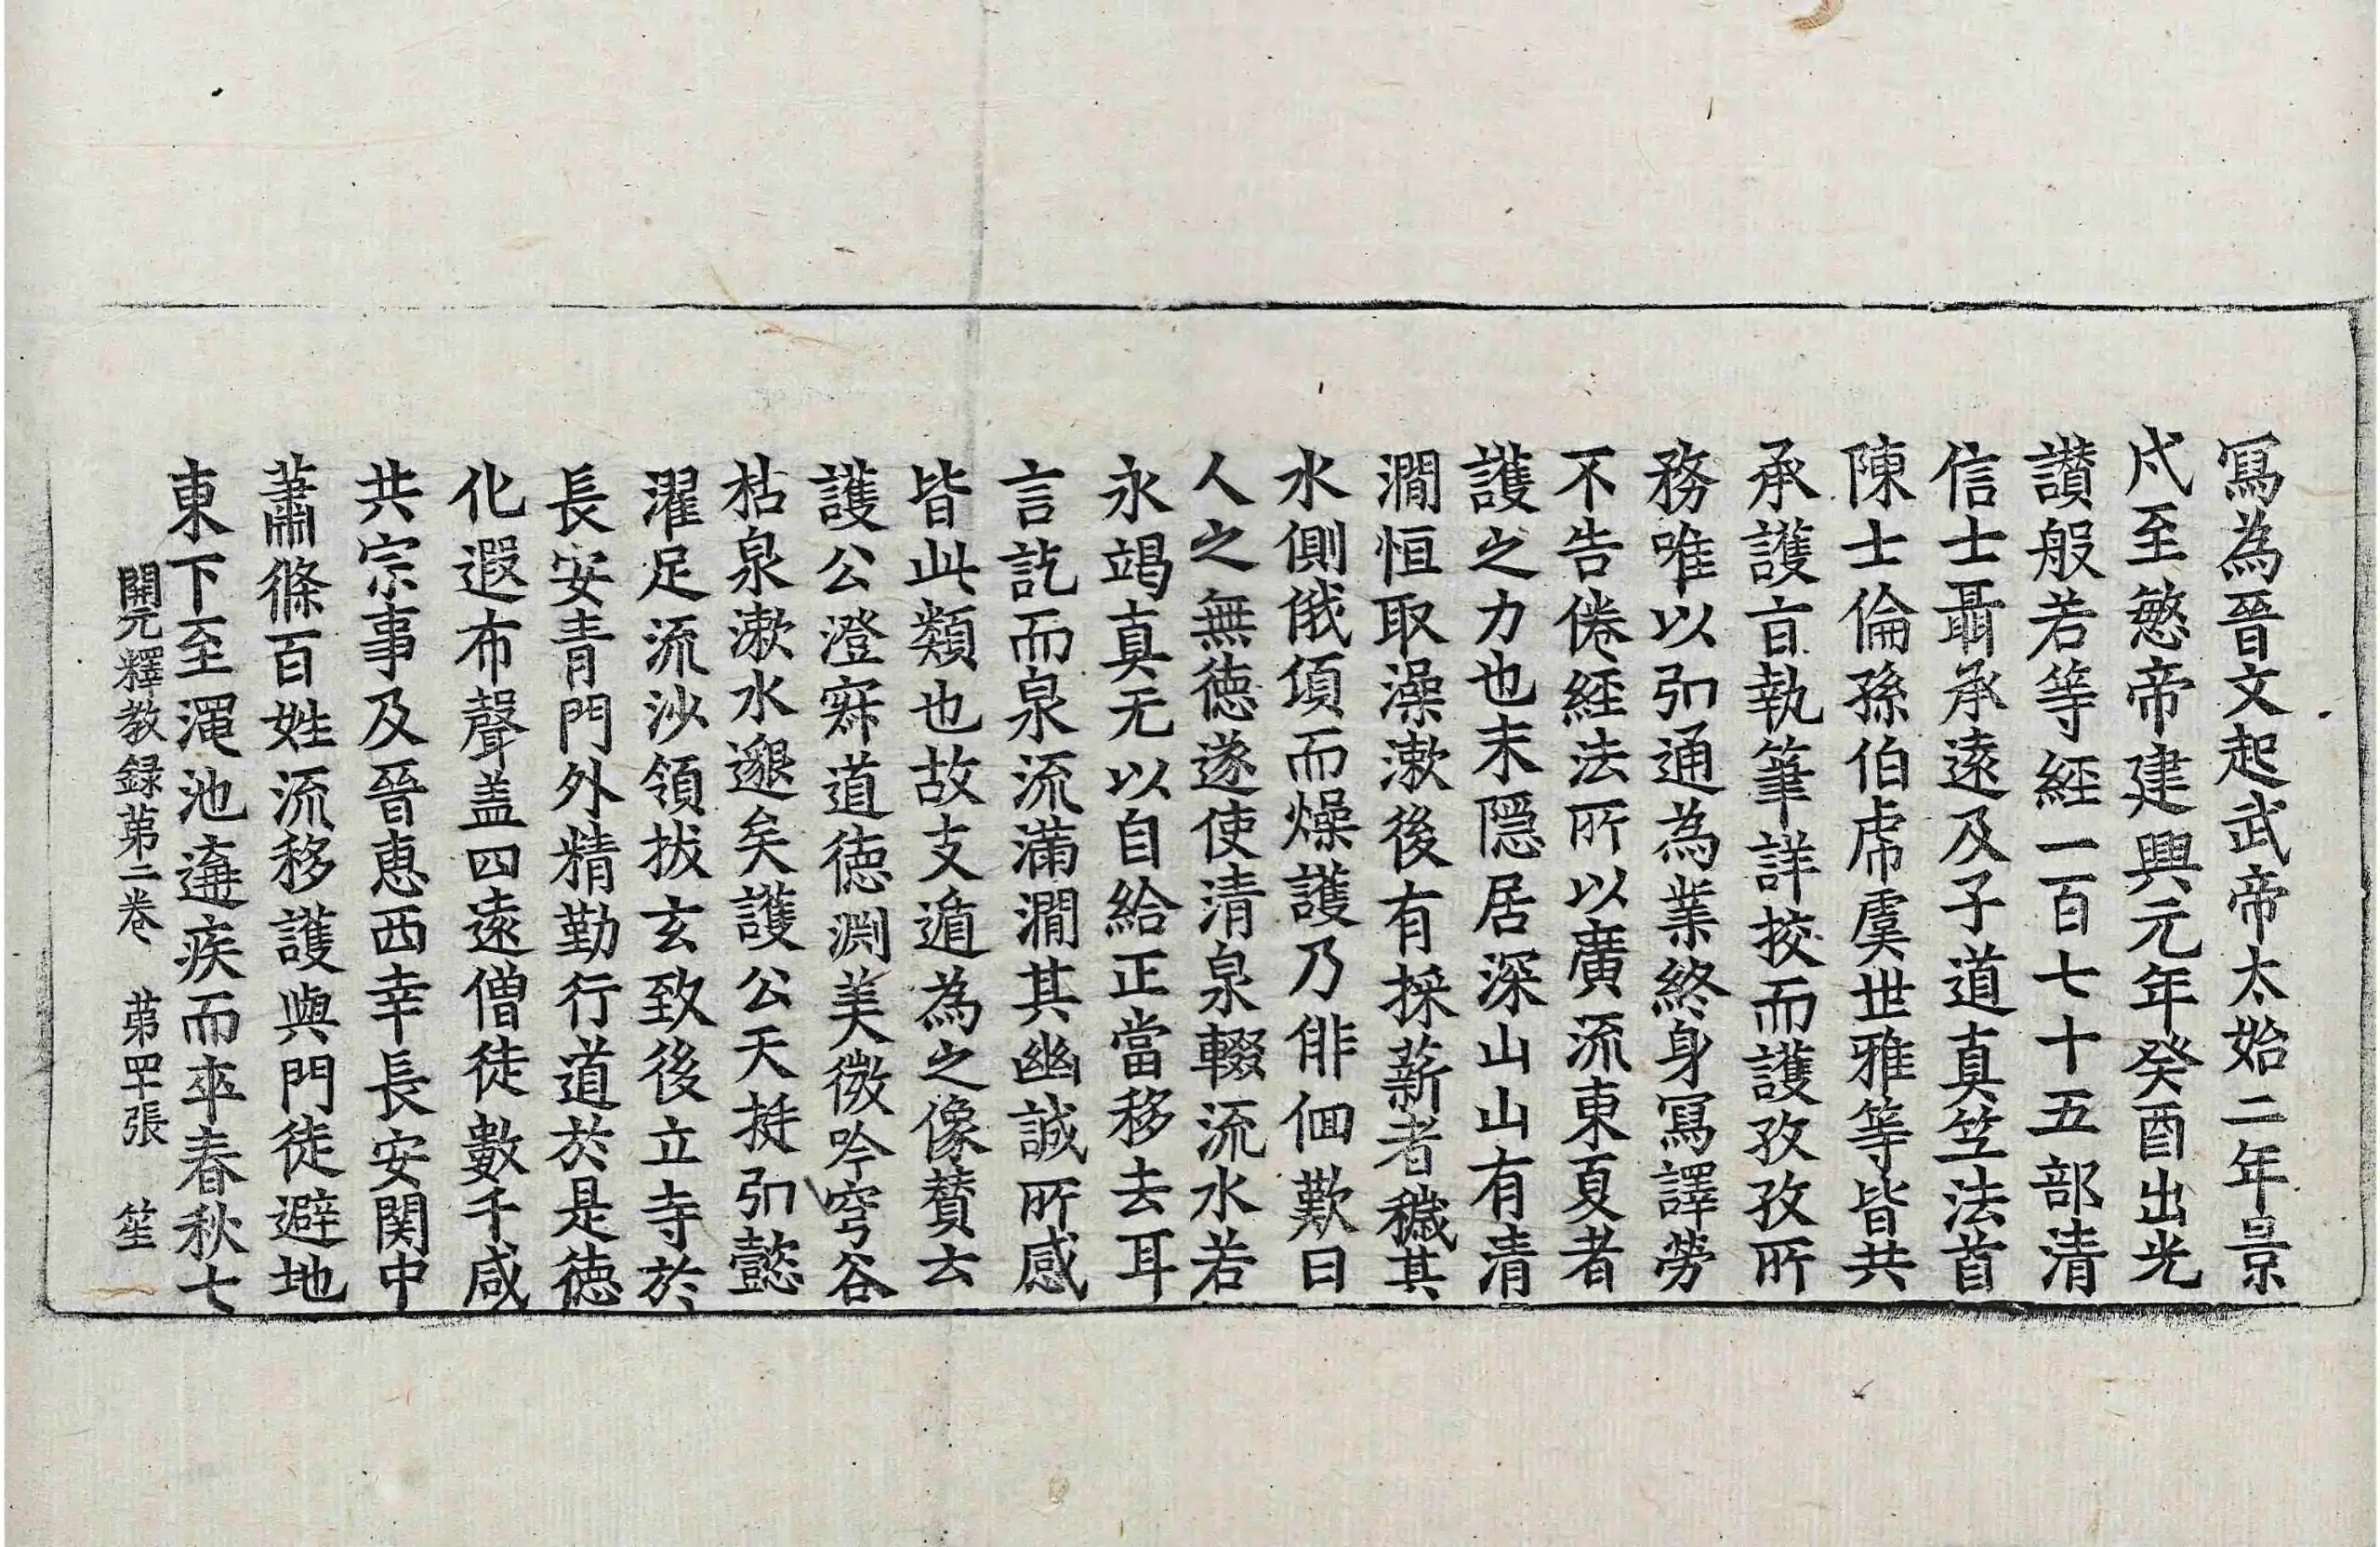 寫為晉文起武帝太始二年景
戌至愍帝建興元年癸酉出光
讃般若等經一百七十五部清
信士聶承遠及子道真笁法首
陳士倫孫伯虎虞世雅等皆共
承護㫖執筆詳挍而護孜孜所
務唯以引通為業終身寫譯勞
不告倦經法所以廣流東夏者
護之力也末隠居深山山有清
澗恒取澡漱後有採薪者穢其
水側俄頃而燥護乃俳佪歎曰
人之無徳遂使清泉輟流水若
永竭真无以自給正當移去耳
言訖而泉流滿澗其幽誠所感
皆此類也故支遁為之像賛云
護公澄寂道徳渊美微吟穹谷
枯泉漱水邈矣護公天挺引懿
濯足流沙領拔玄致後立寺於
長安青門外精勤行道於是徳
化遐布聲盖四遠僧徒數千咸
共宗事及晉惠西幸長安関中
蕭條百姓流移護與門徒避地
東下至澠池遘疾而卒春秋七
開元釋教録苐二卷 苐罕張 笙